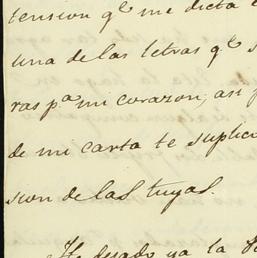 tension qᵉ me dicta
una de las letras qᵉ s
ras pᵃ mi corazon, asi p
de mi carta te suplic
sion de las tuyas.
He dejado ya la